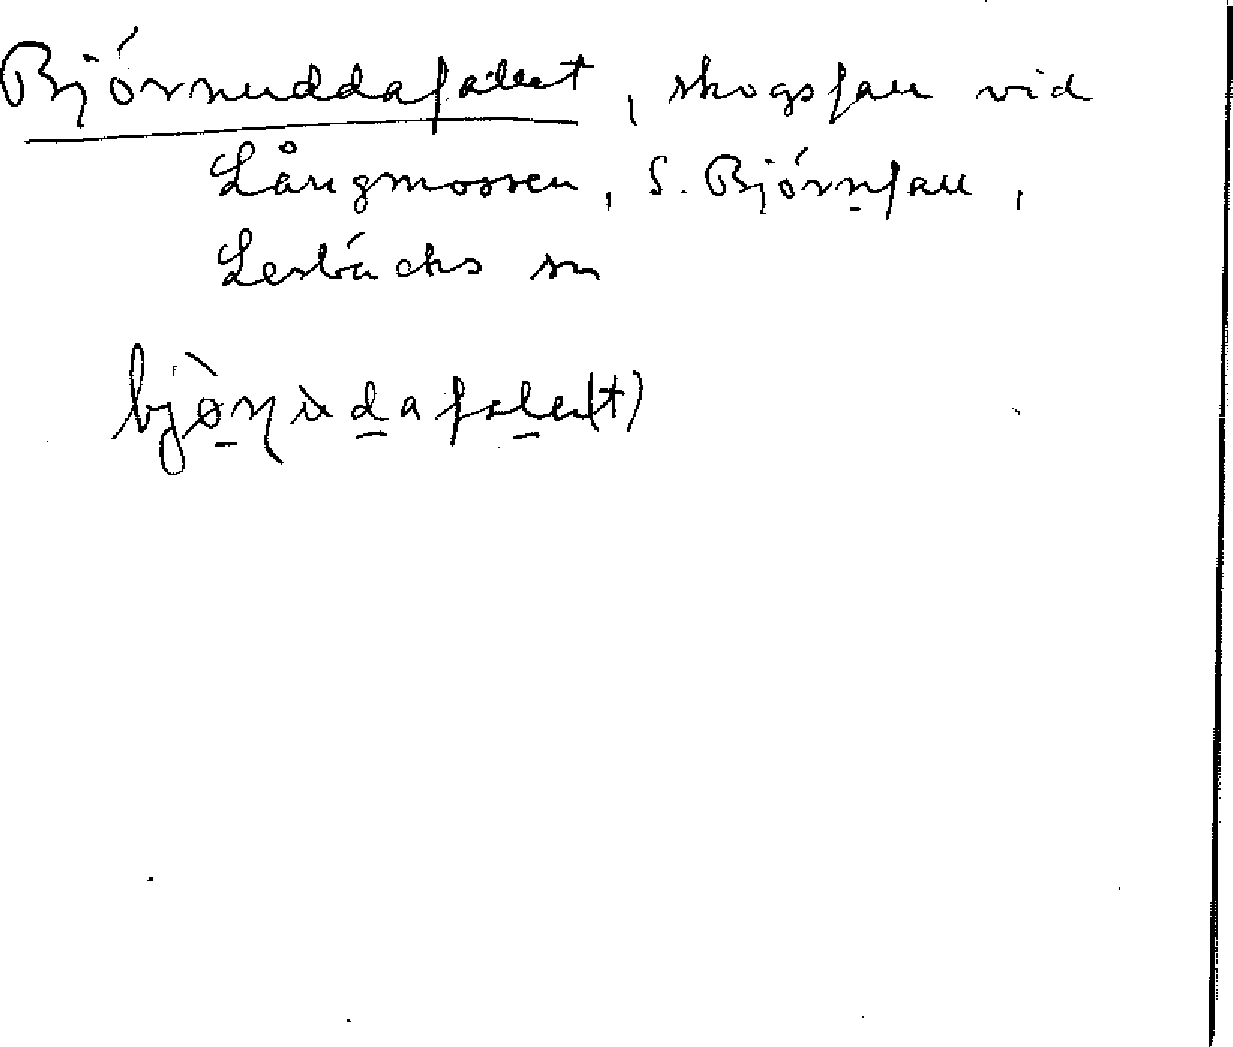 Björnuddafallet, skogsfall vid
Långmossen, S. Björnfall,
Lerbäcks sn